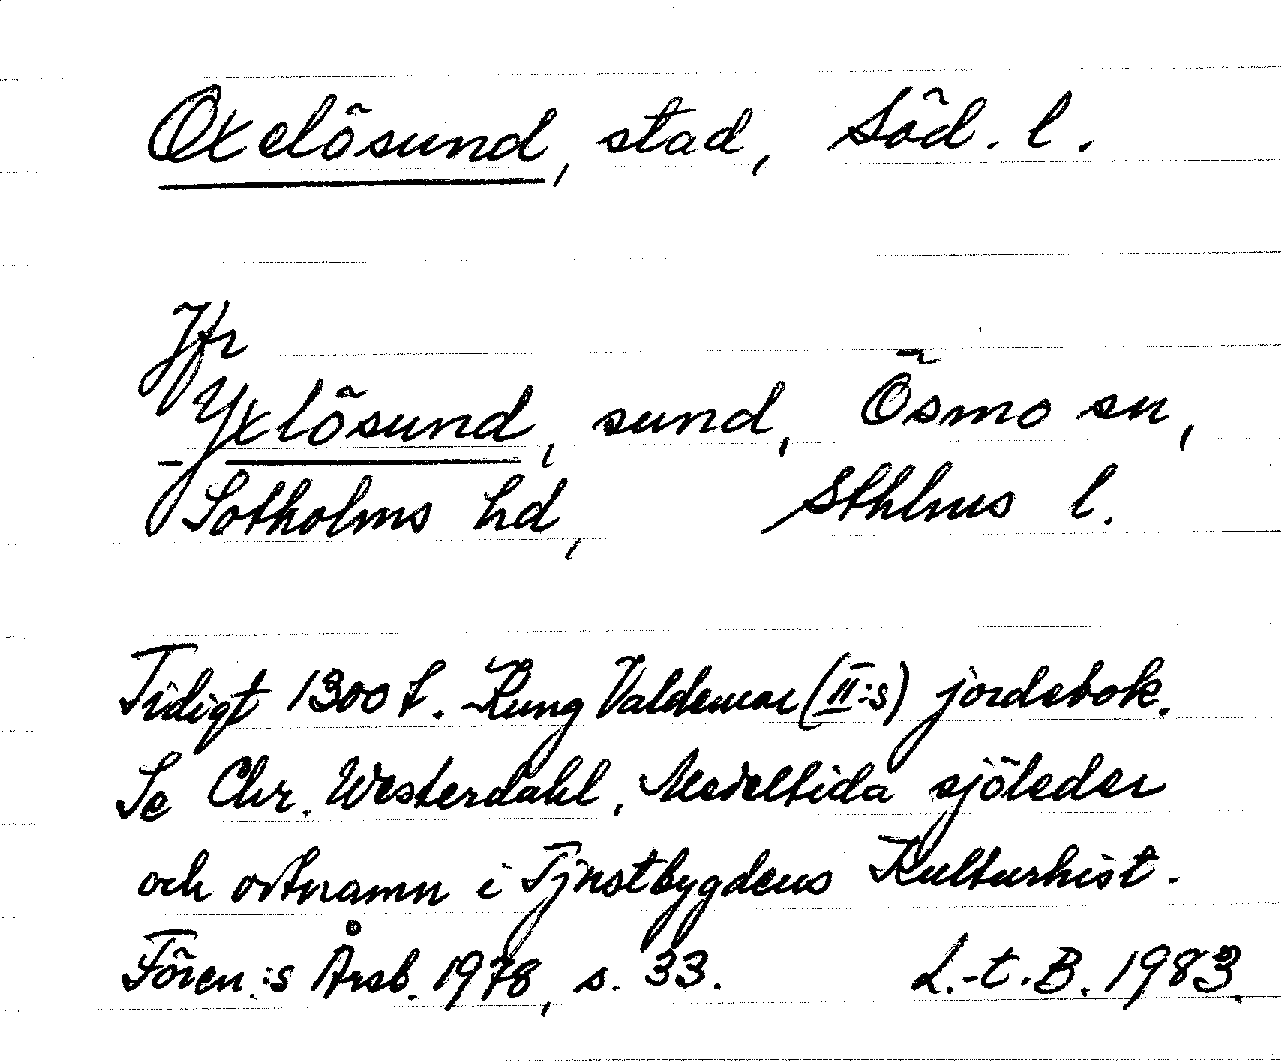 Oxelösund, stad, Söd. l.
Jfr
Yxlösund, sund, Ösmo sn,
Sotholms hd, Sthlms l.
Tidigt 1300 t. Kung Valdemar (II:s) jordebok.
Se Chr. Westerdahl, Medeltida sjöleder
och ortnamn i Tjustbygdens Kulturhist.
Fören:s Årsb. 1978, s. 33. L.-t. B. 1983.